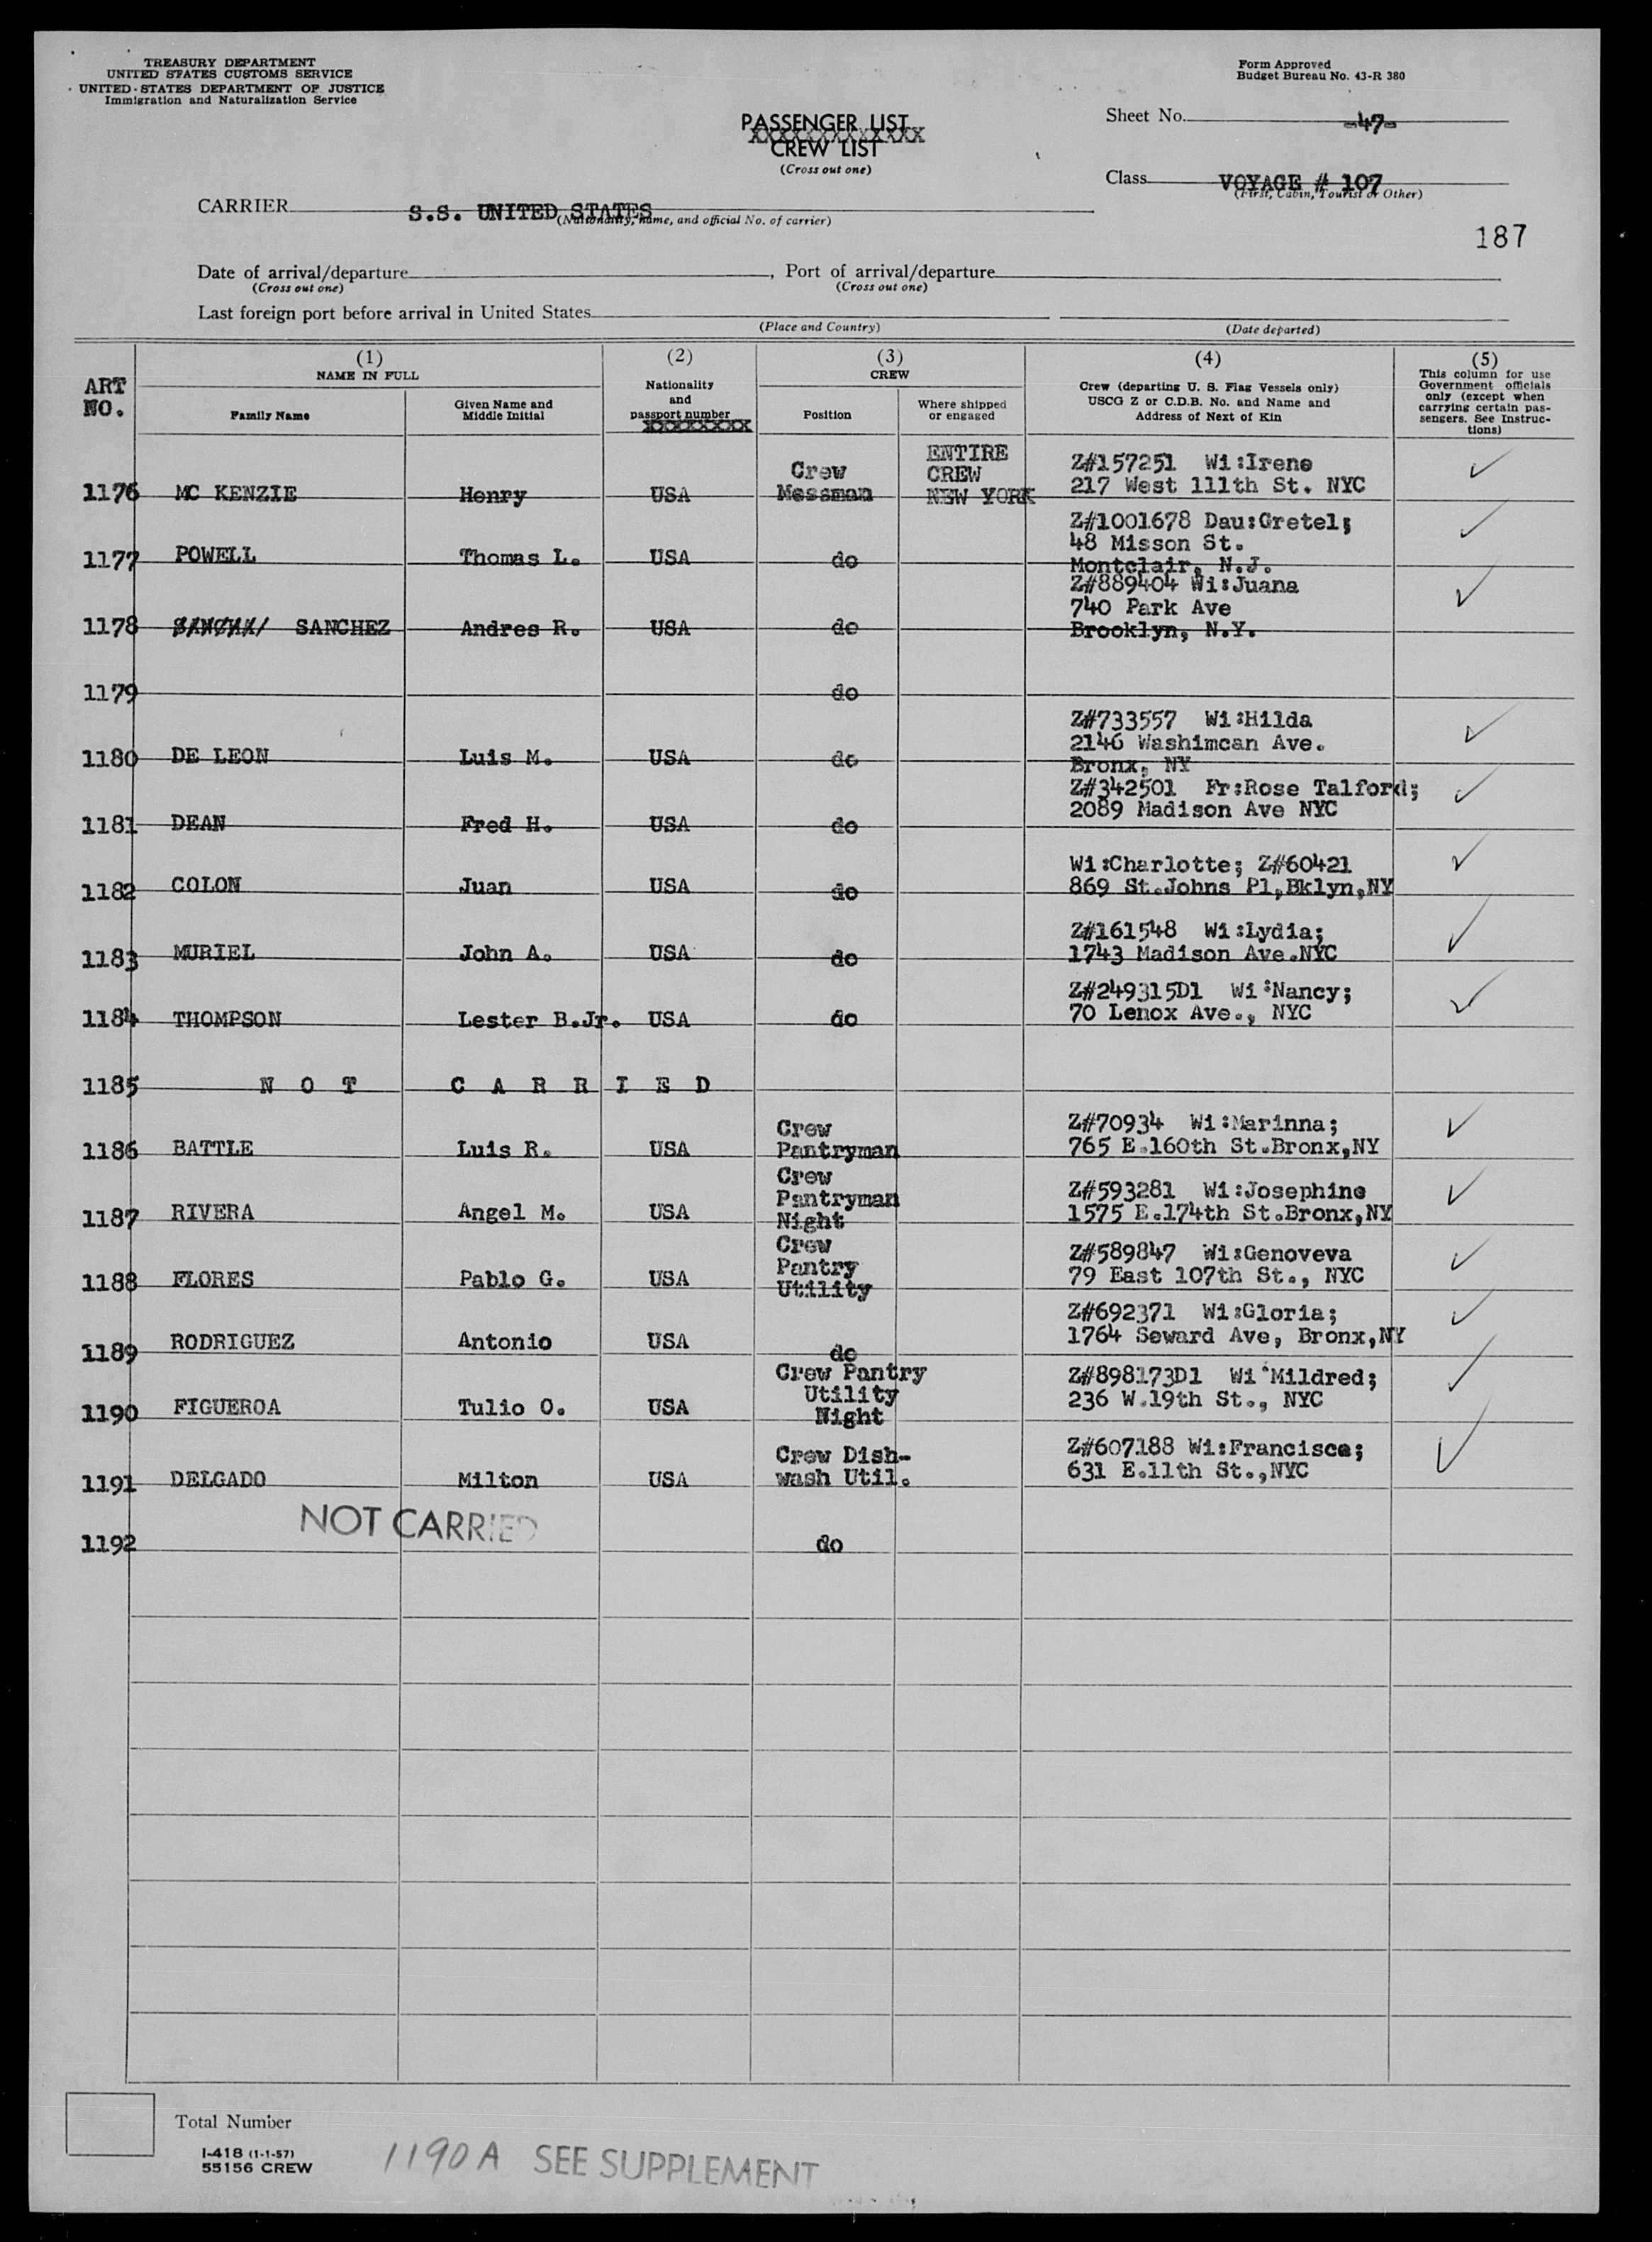 TREASURY DEPARTMENT
UNITED STATES CUSTOMS SERVICE
UNITED STATES DEPARTMENT OF JUSTICE
Immigration and Naturalization Service
Form Approved
Budget Bureau No. 43-R 380
PASSENGER LIST
XXXXXXXXXXXXX
CREW LIST
(Cross out one)
Sheet No. -47-
Class VOYAGE # 107
(First, Cabin, Tourist or Other)
CARRIER S.S. UNITED STATES
(Nationality, name, and official No. of carrier)
187
Date of arrival/departure , Port of arrival/departure
(Cross out one) (Cross out one)
Last foreign port before arrival in United States
(Place and Country) (Date departed)
ART NO.
(1) NAME IN FULL
Family Name
Given Name and Middle Initial
(2) Nationality and passport number
XXXXXXXX
(3) CREW
Position
Where shipped or engaged
(4) Crew (departing U. S. Flag Vessels only) USCG Z or C.D.B. No. and Name and Address of Next of Kin
(5) This column for use Government officials only (except when carrying certain passengers. See Instructions)
1176 MC KENZIE Henry USA Crew Messman ENTIRE CREW NEW YORK Z#157251 Wi:Irene 217 West 111th St. NYC
1177 POWELL Thomas L. USA do Z#1001678 Dau:Gretel; 48 Misson St. Montclair, N.J.
1178 SANCHEZ Andres R. USA do Z#889404 Wi:Juana 740 Park Ave Brooklyn, N.Y.
1179 do
1180 DE LEON Luis M. USA do Z#733557 Wi:Hilda 2146 Washimcan Ave. Bronx, NY
1181 DEAN Fred H. USA do Z#342501 Fr:Rose Talford; 2089 Madison Ave NYC
1182 COLON Juan USA do Wi:Charlotte; Z#60421 869 St.Johns Pl,Bklyn,NY
1183 MURIEL John A. USA do Z#161548 Wi:Lydia; 1743 Madison Ave.NYC
1184 THOMPSON Lester B.Jr. USA do Z#249315D1 Wi:Nancy; 70 Lenox Ave., NYC
1185 N O T C A R R I E D
1186 BATTLE Luis R. USA Crew Pantryman Z#70934 Wi:Marinna; 765 E.160th St.Bronx,NY
1187 RIVERA Angel M. USA Crew Pantryman Night Z#593281 Wi:Josephine 1575 E.174th St.Bronx,NY
1188 FLORES Pablo G. USA Crew Pantry Utility Z#589847 Wi:Genoveva 79 East 107th St., NYC
1189 RODRIGUEZ Antonio USA do Z#692371 Wi:Gloria; 1764 Seward Ave, Bronx,NY
1190 FIGUEROA Tulio O. USA Crew Pantry Utility Night Z#898173D1 Wi:Mildred; 236 W.19th St., NYC
1191 DELGADO Milton USA Crew Dish-wash Util. Z#607188 Wi:Francisca; 631 E.11th St.,NYC
NOT CARRIED
1192 do
Total Number
I-418 (1-1-57)
55156 CREW
1190A SEE SUPPLEMENT